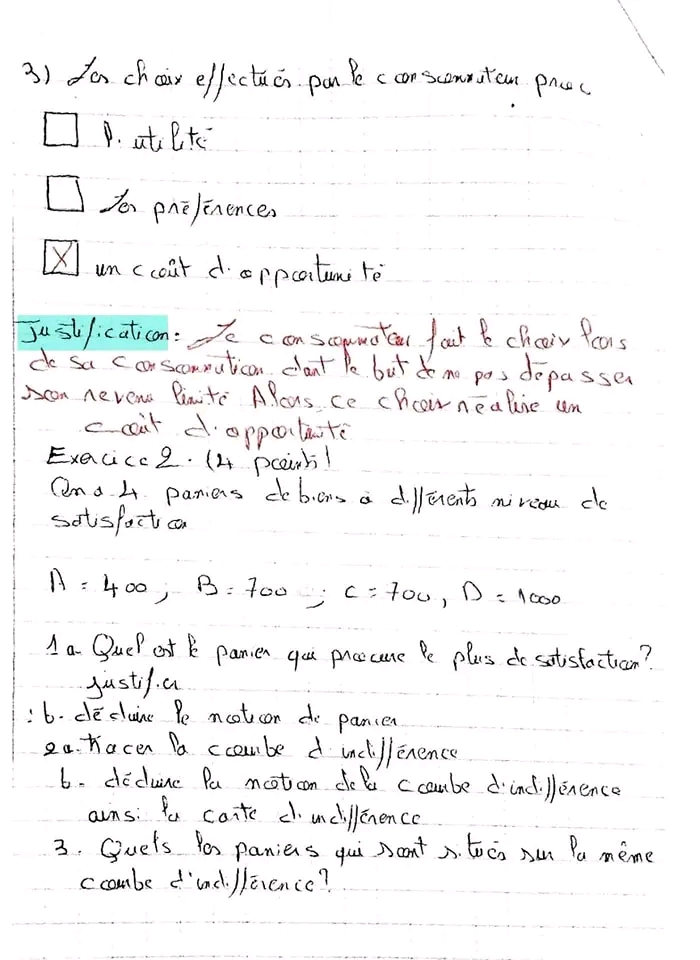 3) Les choix effectués par le consommateur proc
l'utilité
Les préférences
un coût d'opportunité
Justification: Le consommateur fait le choix lors
de sa consommation dant le but de ne pas dépasser
son revenu limité Alors ce choix réalise un
coût d'opportunité
Exercice 2. (4 points)
On a 4 paniers de biens à différents niveau de
satisfaction
A = 400; B = 700; C = 700, D = 1000
1 a. Quel est le panier qui procure le plus de satisfaction?
Justifier
b. déduire la notion de panier
2 a. Tracer la courbe d'indifférence
b. déduire la notion de la courbe d'indifférence
ainsi la carte d'indifférence
3. Quels les paniers qui sont situés sur la même
courbe d'indifférence?